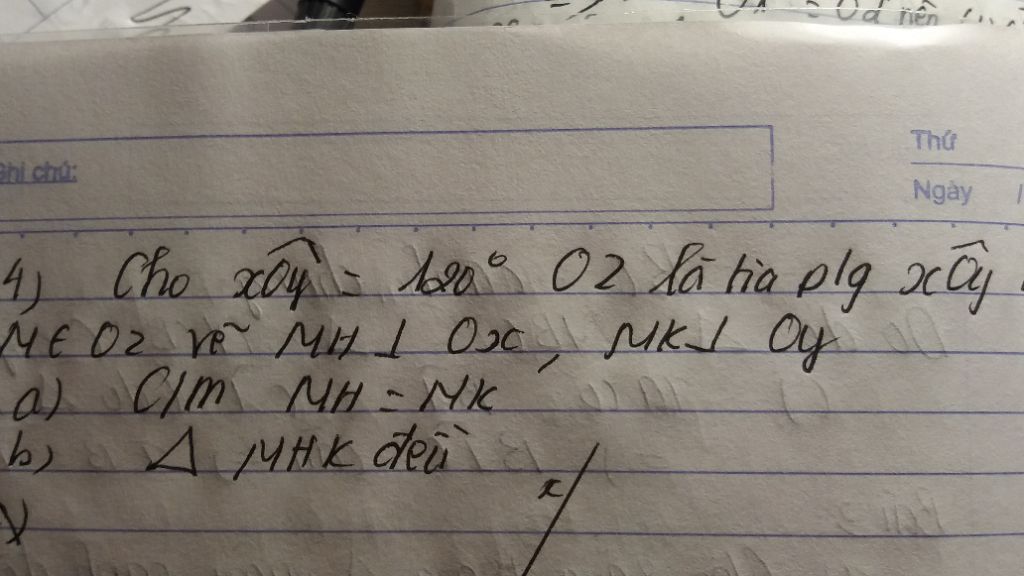 Od nên
Ghi chú:
Thứ
Ngày /
4) Cho xÔy = 120° Oz là tia p/g xÔy
M ∈ Oz vẽ MH ⊥ Ox, MK ⊥ Oy
a) C/m MH = MK
b) Δ MHK đều
x